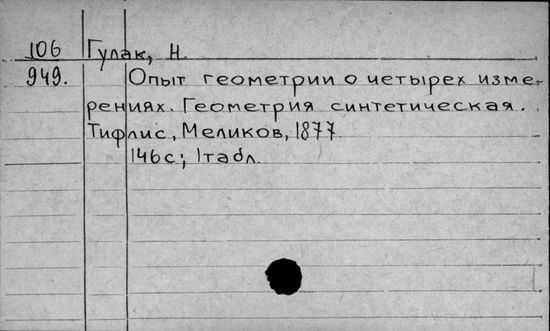 106 Гулак, Н.
949. Опыт геометрии о четырех изме-
рениях. Геометрия синтетическая.
Тифлис, Меликов, 1877.
146с; 1табл.